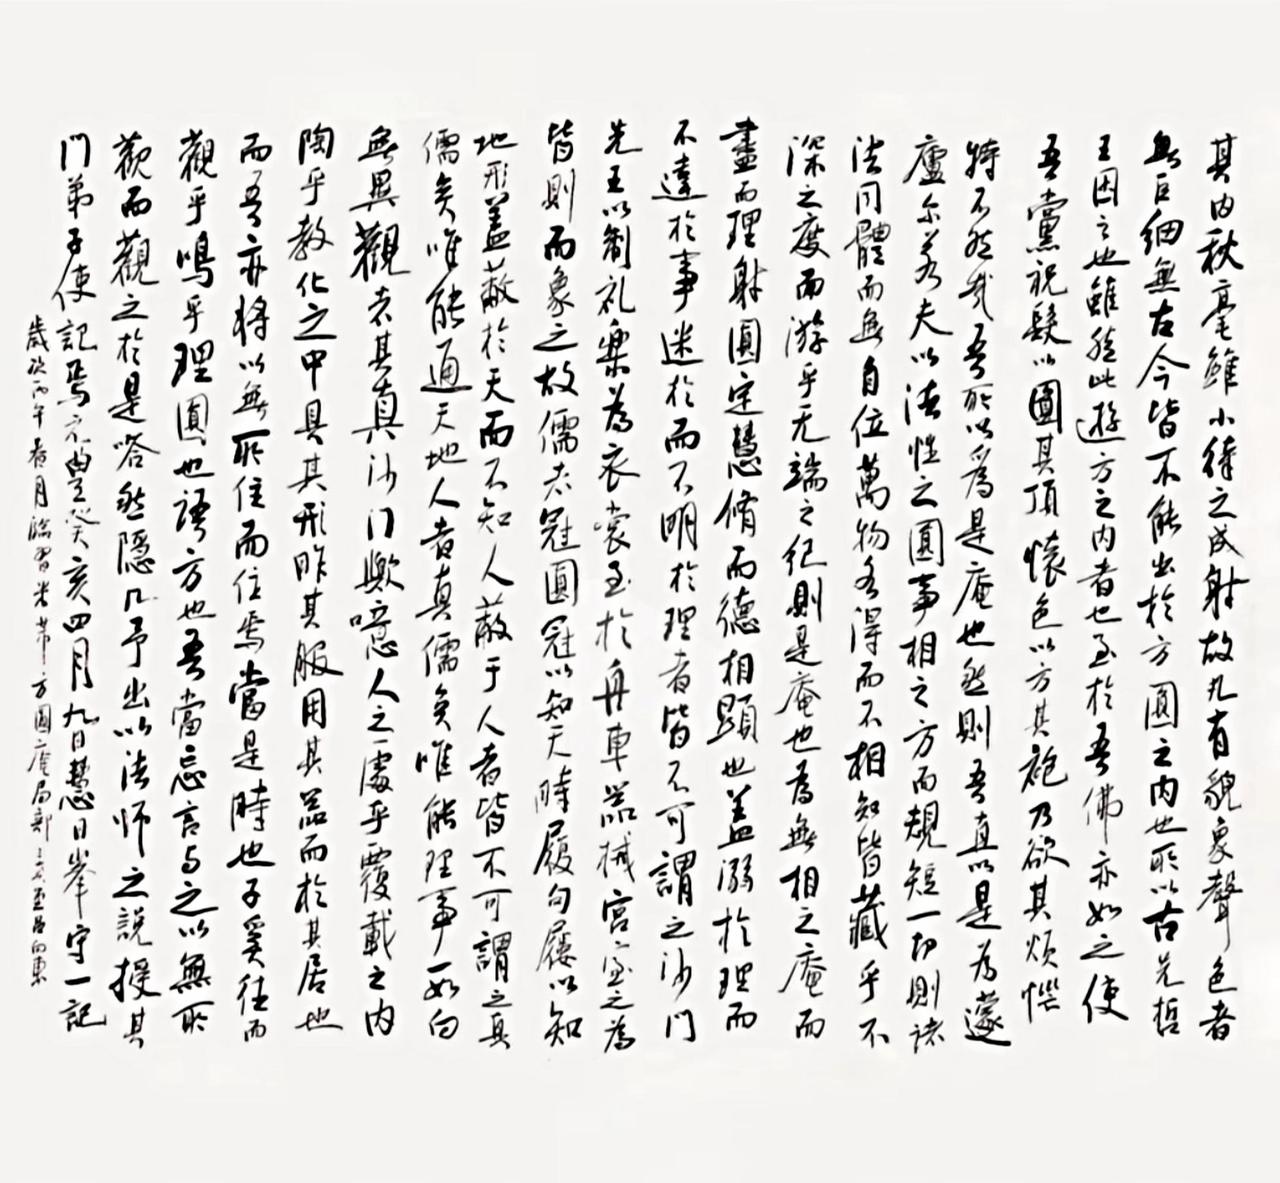 其内秋毫雖小待之成射故凡有貌象聲色者
無巨細無古今皆不能出於方圓之内也所以古先哲
王因之也雖然此遊方之内者也至於吾佛亦如之使
吾黨祝髮以圓其頂懷色以方其袍乃欲其煩惱
特不然哉吾所以爲是庵也然則吾直以是爲蘧
廬尔若夫以法性之圓事相之方而規矩一切則諸
法同體而無自位萬物各得而不相知皆藏乎不
深之度而游乎无端之紀則是庵也為無相之庵而
盡而理射圓定慧脩而德相顯也蓋溺於理而
不達於事迷於而不明於理者皆不可謂之沙門
先王以制礼樂為衣裳至於舟車器械宮室之為
皆則而象之故儒者冠圓冠以知天時履句屨以知
地形蓋蔽於天而不知人蔽于人者皆不可謂之真
儒矣唯能通天地人者真儒矣唯能理事一如向
無異觀者其真沙门歟噫人之處乎覆載之内
陶乎教化之中具其形昨其服用其器而於其居也
而吾亦將以無所住而住焉當是時也子奚往而
觀乎鳴乎理圓也語方也吾當忘言与之以無所
歡而觀之於是嗒然隱几予出以法师之說授其
門弟子使記焉元豐癸亥四月九日慧日峯守一記
歲次丙午春月臨習米芾方圓庵局部